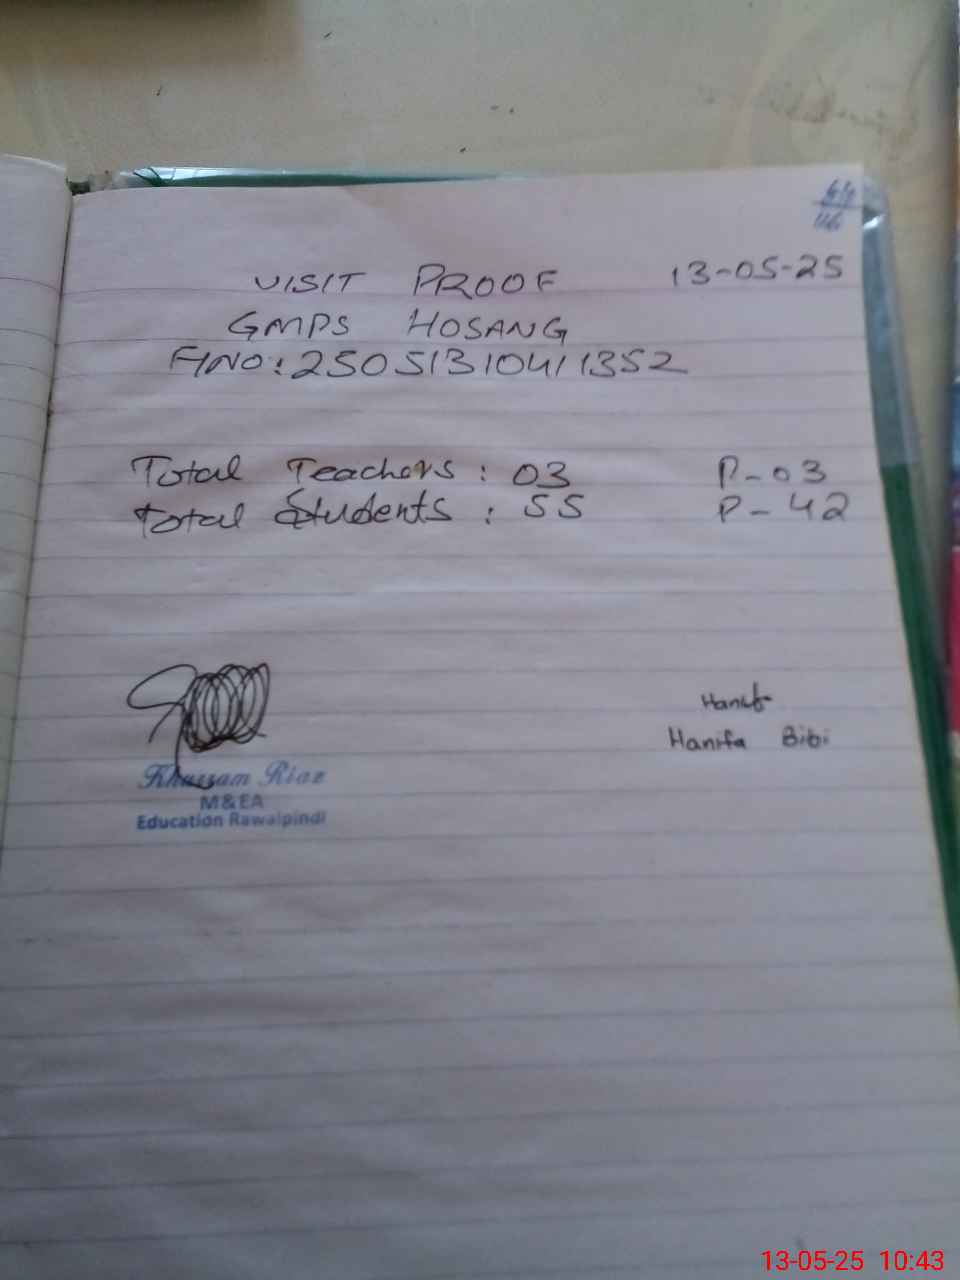 64
116
VISIT PROOF 13-05-25
GMPS HOSANG
FINO: 25051310411352
Total Teachers : 03 P-03
Total Students : 55 P-42
Hanifa Bibi
Khurram Riaz
M&EA
Education Rawalpindi
13-05-25 10:43